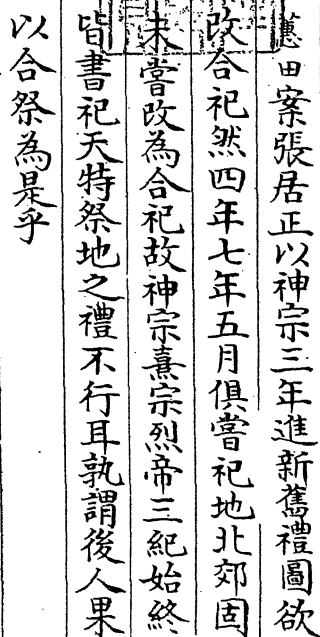 蕙田案張居正以神宗三年進新舊禮圖欲
改合祀然四年七年五月俱嘗祀地北郊固
未嘗改為合祀故神宗熹宗烈帝三紀始終
皆書祀天特祭地之禮不行耳孰謂後人果
以合祭為是乎